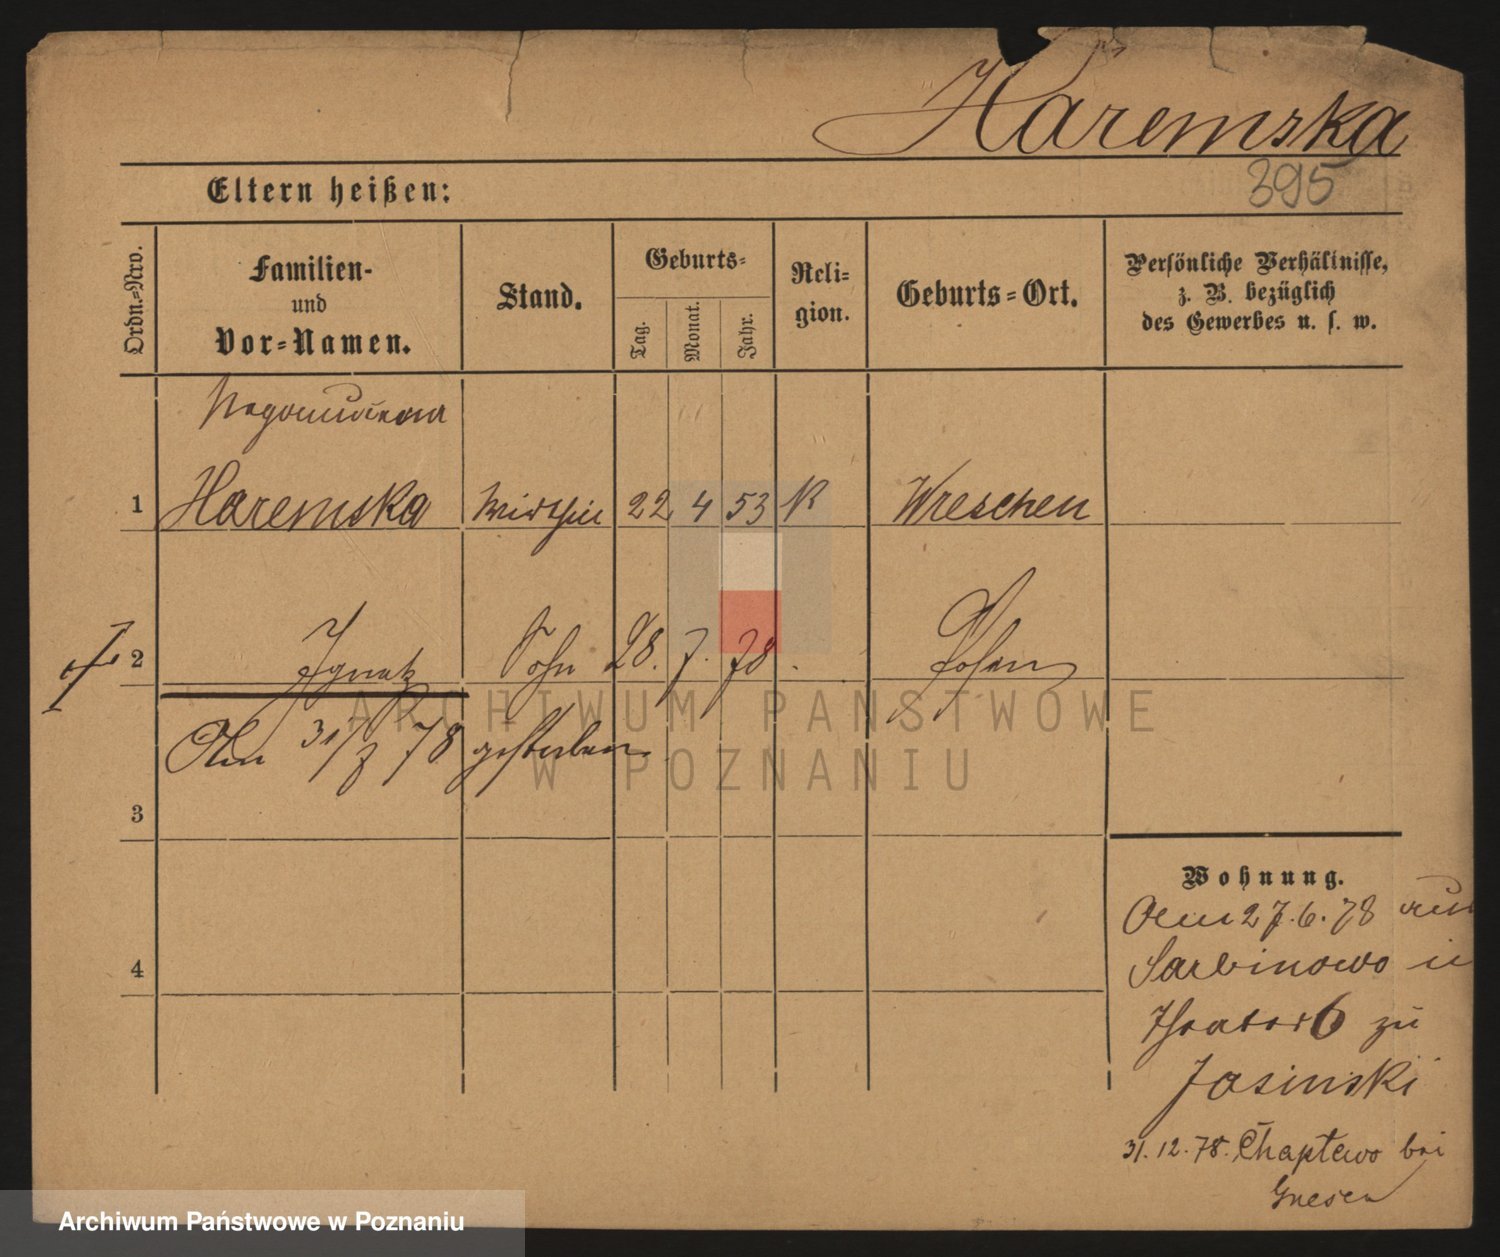 Haremska
395
Eltern heißen:
Ordn.=Nro.
Familien-
und
Vor=Namen.
Stand.
Geburts=
Tag.
Monat.
Jahr.
Reli=
gion.
Geburts=Ort.
Persönliche Verhältnisse,
z. B. bezüglich
des Gewerbes u. s. w.
1 Haremska Wirthin 22 4 53 K Wreschen
2 Ignatz Sohn 28. 7. 78. Posen
Am 31/7 78 gestorben
3
4
Wohnung.
27.6.78 aus
Sarbinowo
6 zu
Jasinski
31.12.78. Chaptewo bei
Gnesen
ARCHIWUM PAŃSTWOWE
W POZNANIU
Archiwum Państwowe w Poznaniu